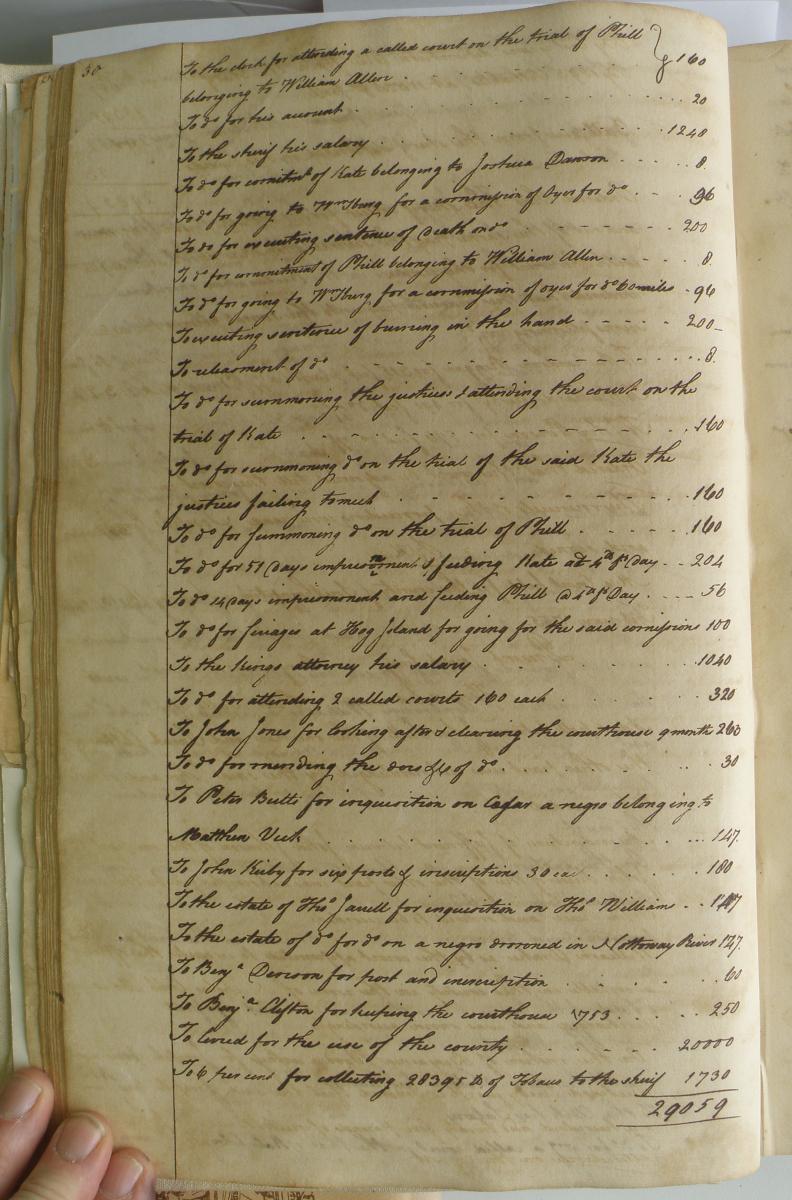 50
To the clerk for attending a called court on the trial of Phill } 160
belonging to William Allen
To do for his account 20
To the sherif his salary 1248
To do for comitmt of Kate belonging to Joshua Dawson 8
To do for going to Wmsburg for a commission of Oyer for do 96
To do for executing sentence of Death on do 200
To do for commitment of Phill belonging to William Allen 8
To do for going to Wmsburg for a commission of oyer for do 60 miles 96
To executing sentence of burning in the hand 200
To releasment of do 8
To do for summoning the justices & attending the court on the
trial of Kate 160
To do for summoning do on the trial of the said Kate the
justices failing to meet 160
To do for summoning do on the trial of Phill 160
To do for 51 Days imprisonment & feeding Kate at 4d pr Day 204
To do 14 Days imprisonment and feeding Phill @ 4d pr Day 56
To do for firiages at Hog Island for going for the said comissions 100
To the kings attorney his salary 1040
To do for attending 2 called courts 160 each 320
To John Jones for looking after & cleaning the courthouse 9 month
To do for mending the doors &c of do 30
To Peter Butts for inquisition on Cesar a negro belonging to
Matthew 147
To John Kirby for six posts & inscriptions 30 ea 180
To the estate of Thos Jarrell for inquisition on Thos William 147
To the estate of do for do on a negro drowned in Nottoway River 147
To Benja for post and inscription 60
To Benja Clifton for keeping the courthouse 1753 250
To Levied for the use of the county 20000
To 6 per cent for collecting 28395 lb of Tobaco to the sherif 1730
29059